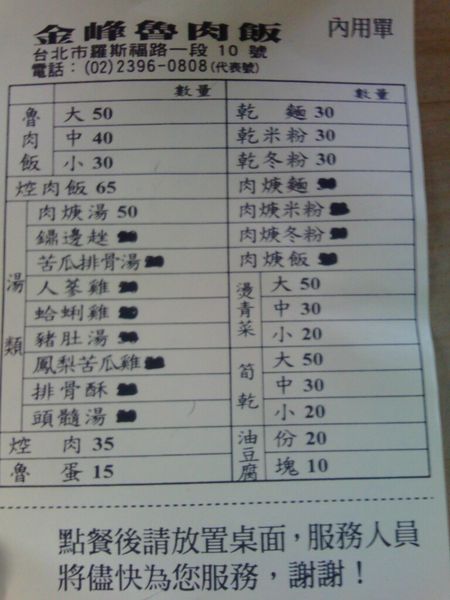 金峰魯肉飯 內用單
台北市羅斯福路一段 10 號
電話：(02)2396-0808(代表號)
數量 數量
魯肉飯 大 50
中 40
小 30
焢肉飯 65
湯類 肉焿湯 50
鏽邊趖
苦瓜排骨湯
人蔘雞
蛤蜊雞
豬肚湯
鳳梨苦瓜雞
排骨酥
頭髓湯
焢 肉 35
魯 蛋 15
乾 麵 30
乾米粉 30
乾冬粉 30
肉焿麵
肉焿米粉
肉焿冬粉
肉焿飯
燙青菜 大 50
中 30
小 20
筍乾 大 50
中 30
小 20
油豆腐 份 20
塊 10
點餐後請放置桌面，服務人員
將儘快為您服務，謝謝！